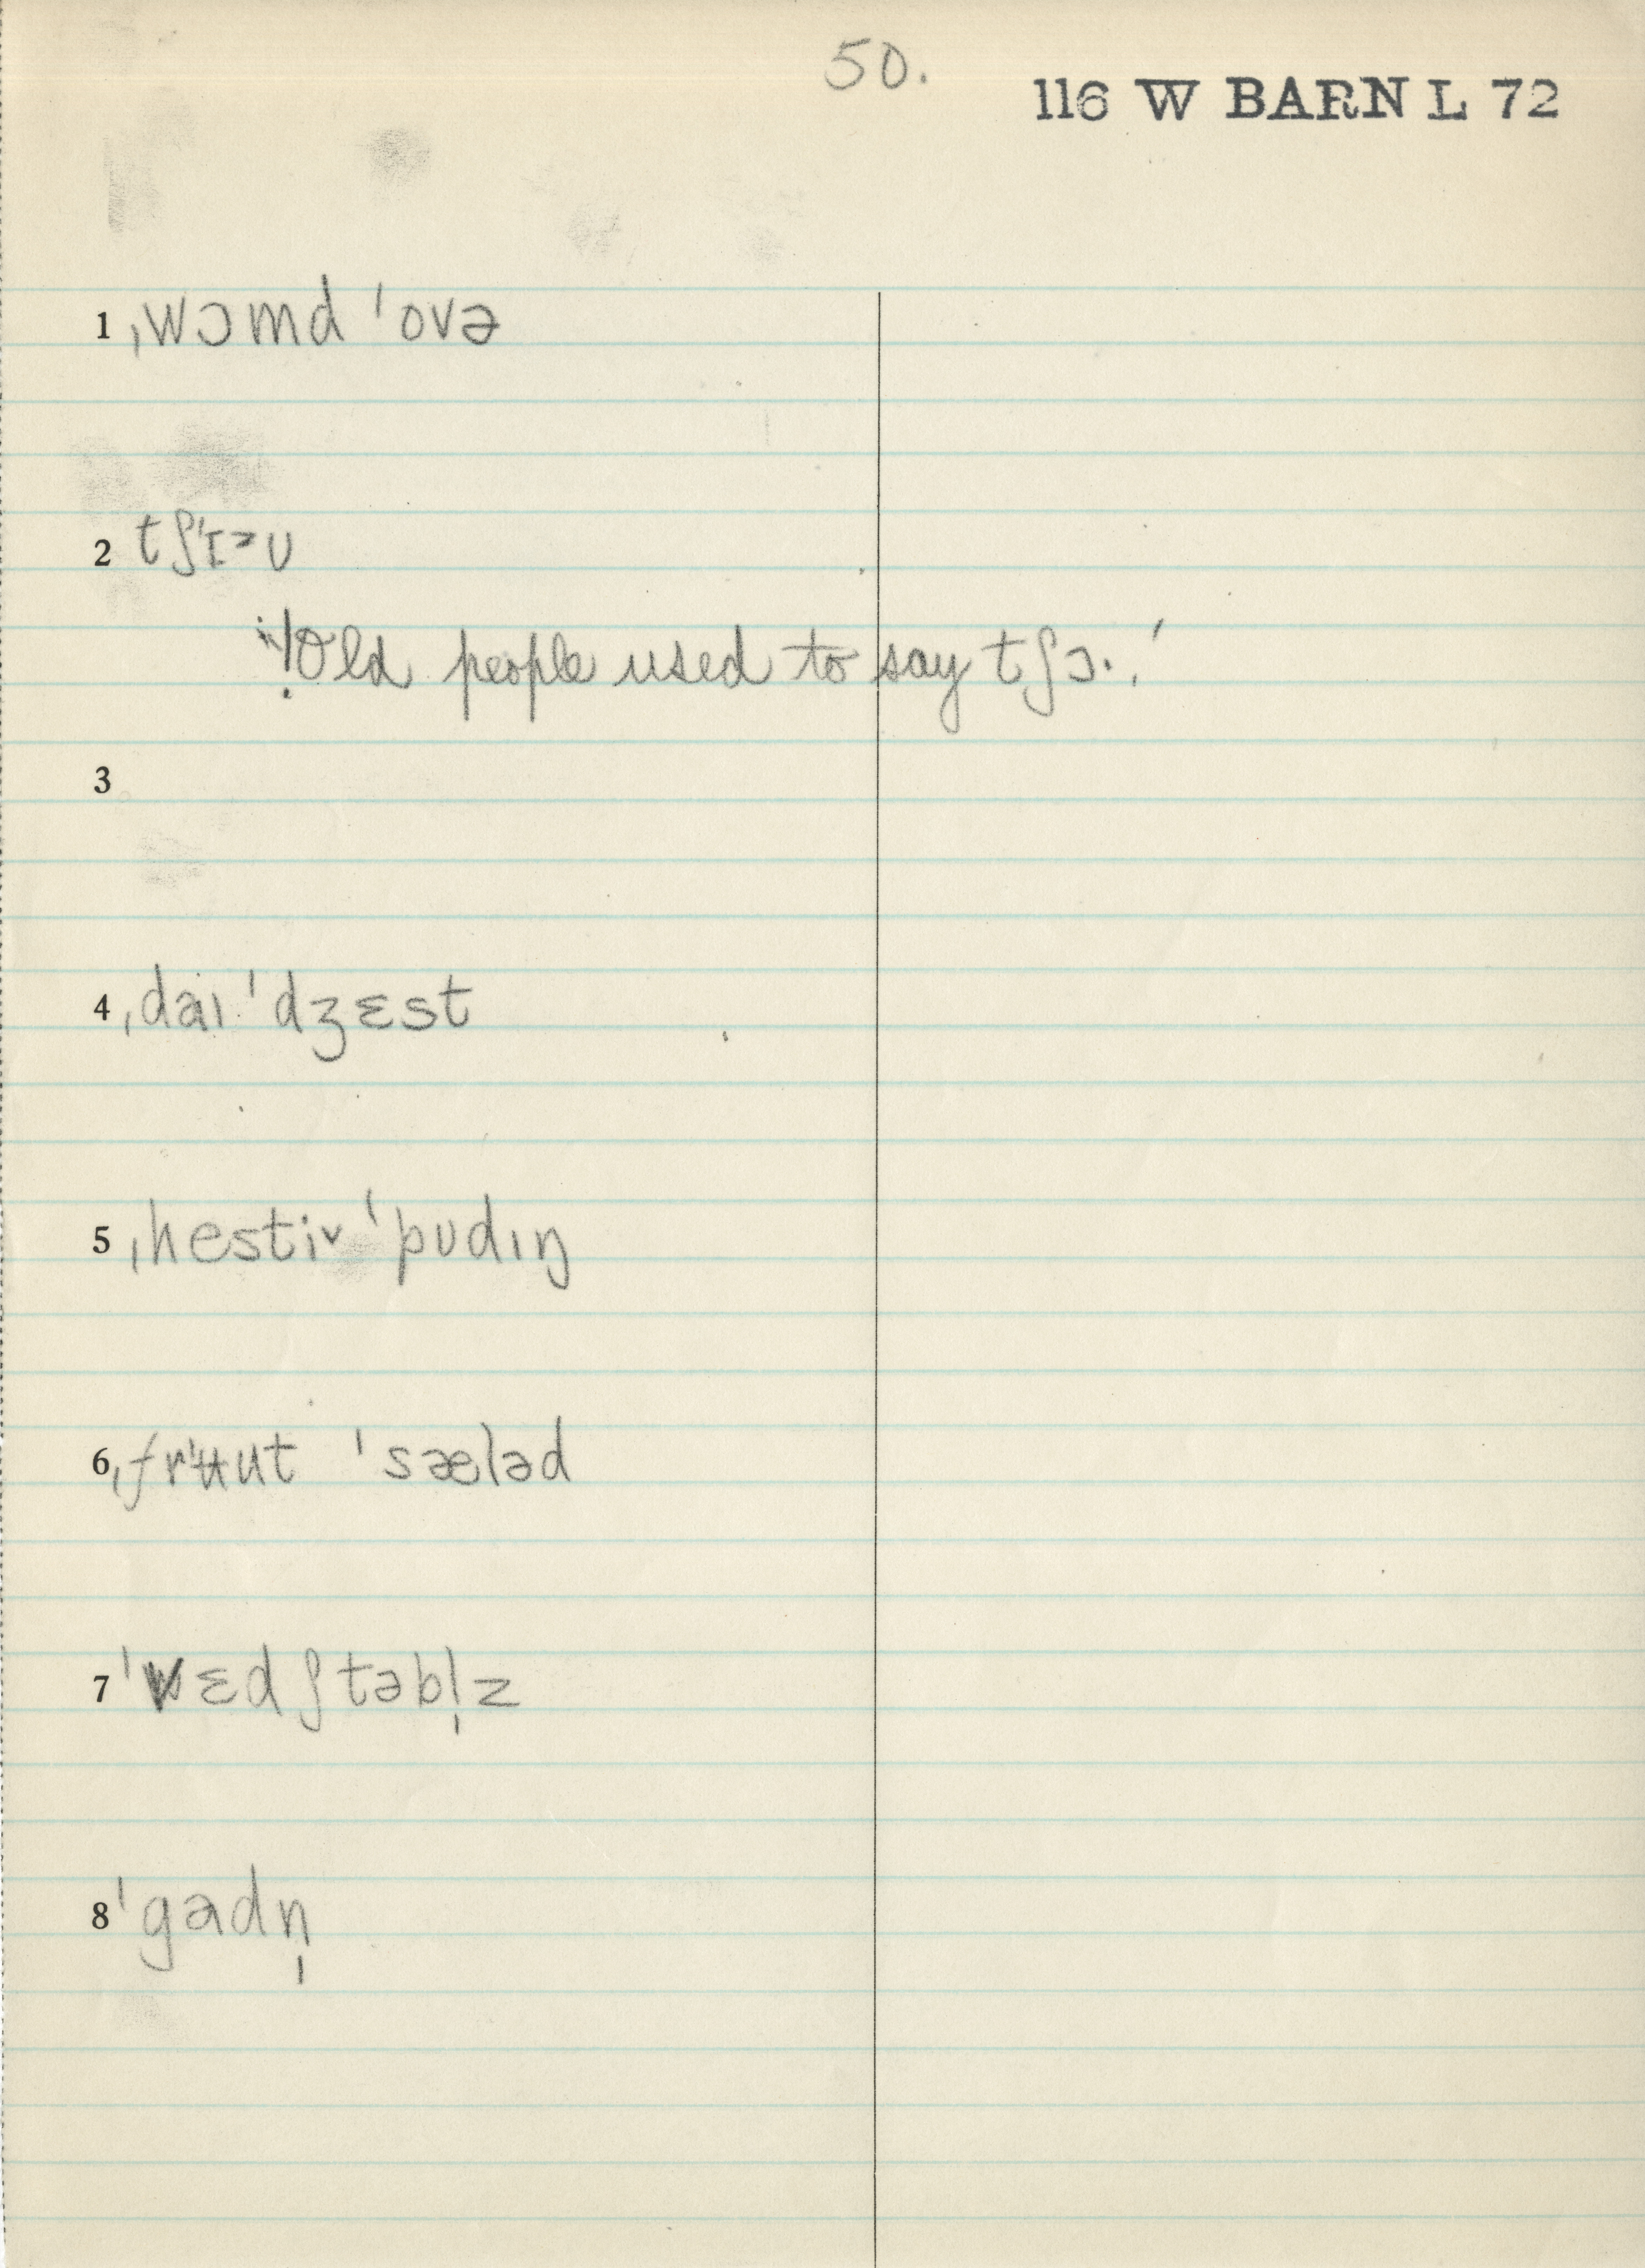 50.
116 W BARN L 72
1 ˌwɔmd ˈovə
2 tʃˈɪᵊʊ
!Old people used to say tʃɔ·.ˈ
3
4 ˌdaɪ ˈdʒɛst
5 ˌhestiᵛ ˈpʊdɪŋ
6 ˌfrʉut ˈsæləd
7 ˈvɛdʃtəbl̩z
8 ˈgadn̩